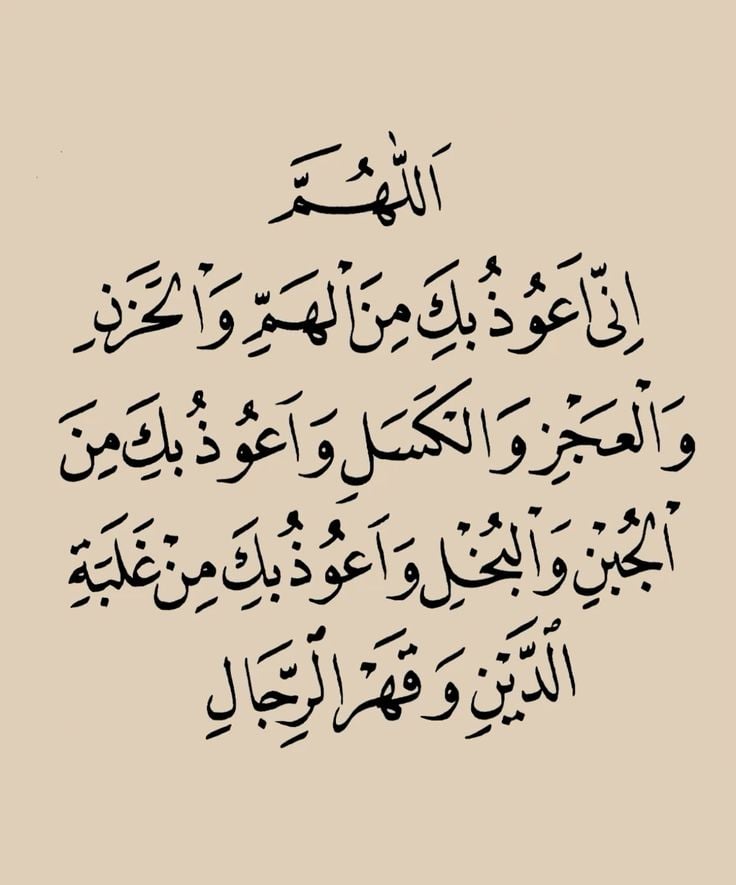 اَللّٰهُمَّ
اِنِّىْ اَعُوْذُ بِكَ مِنَ الْهَمِّ وَالْحَزَنِ
وَالْعَجْزِ وَالْكَسَلِ وَاَعُوْذُ بِكَ مِنَ
الْجُبْنِ وَالْبُخْلِ وَاَعُوْذُ بِكَ مِنْ غَلَبَةِ
الدَّيْنِ وَقَهْرِ الرِّجَالِ